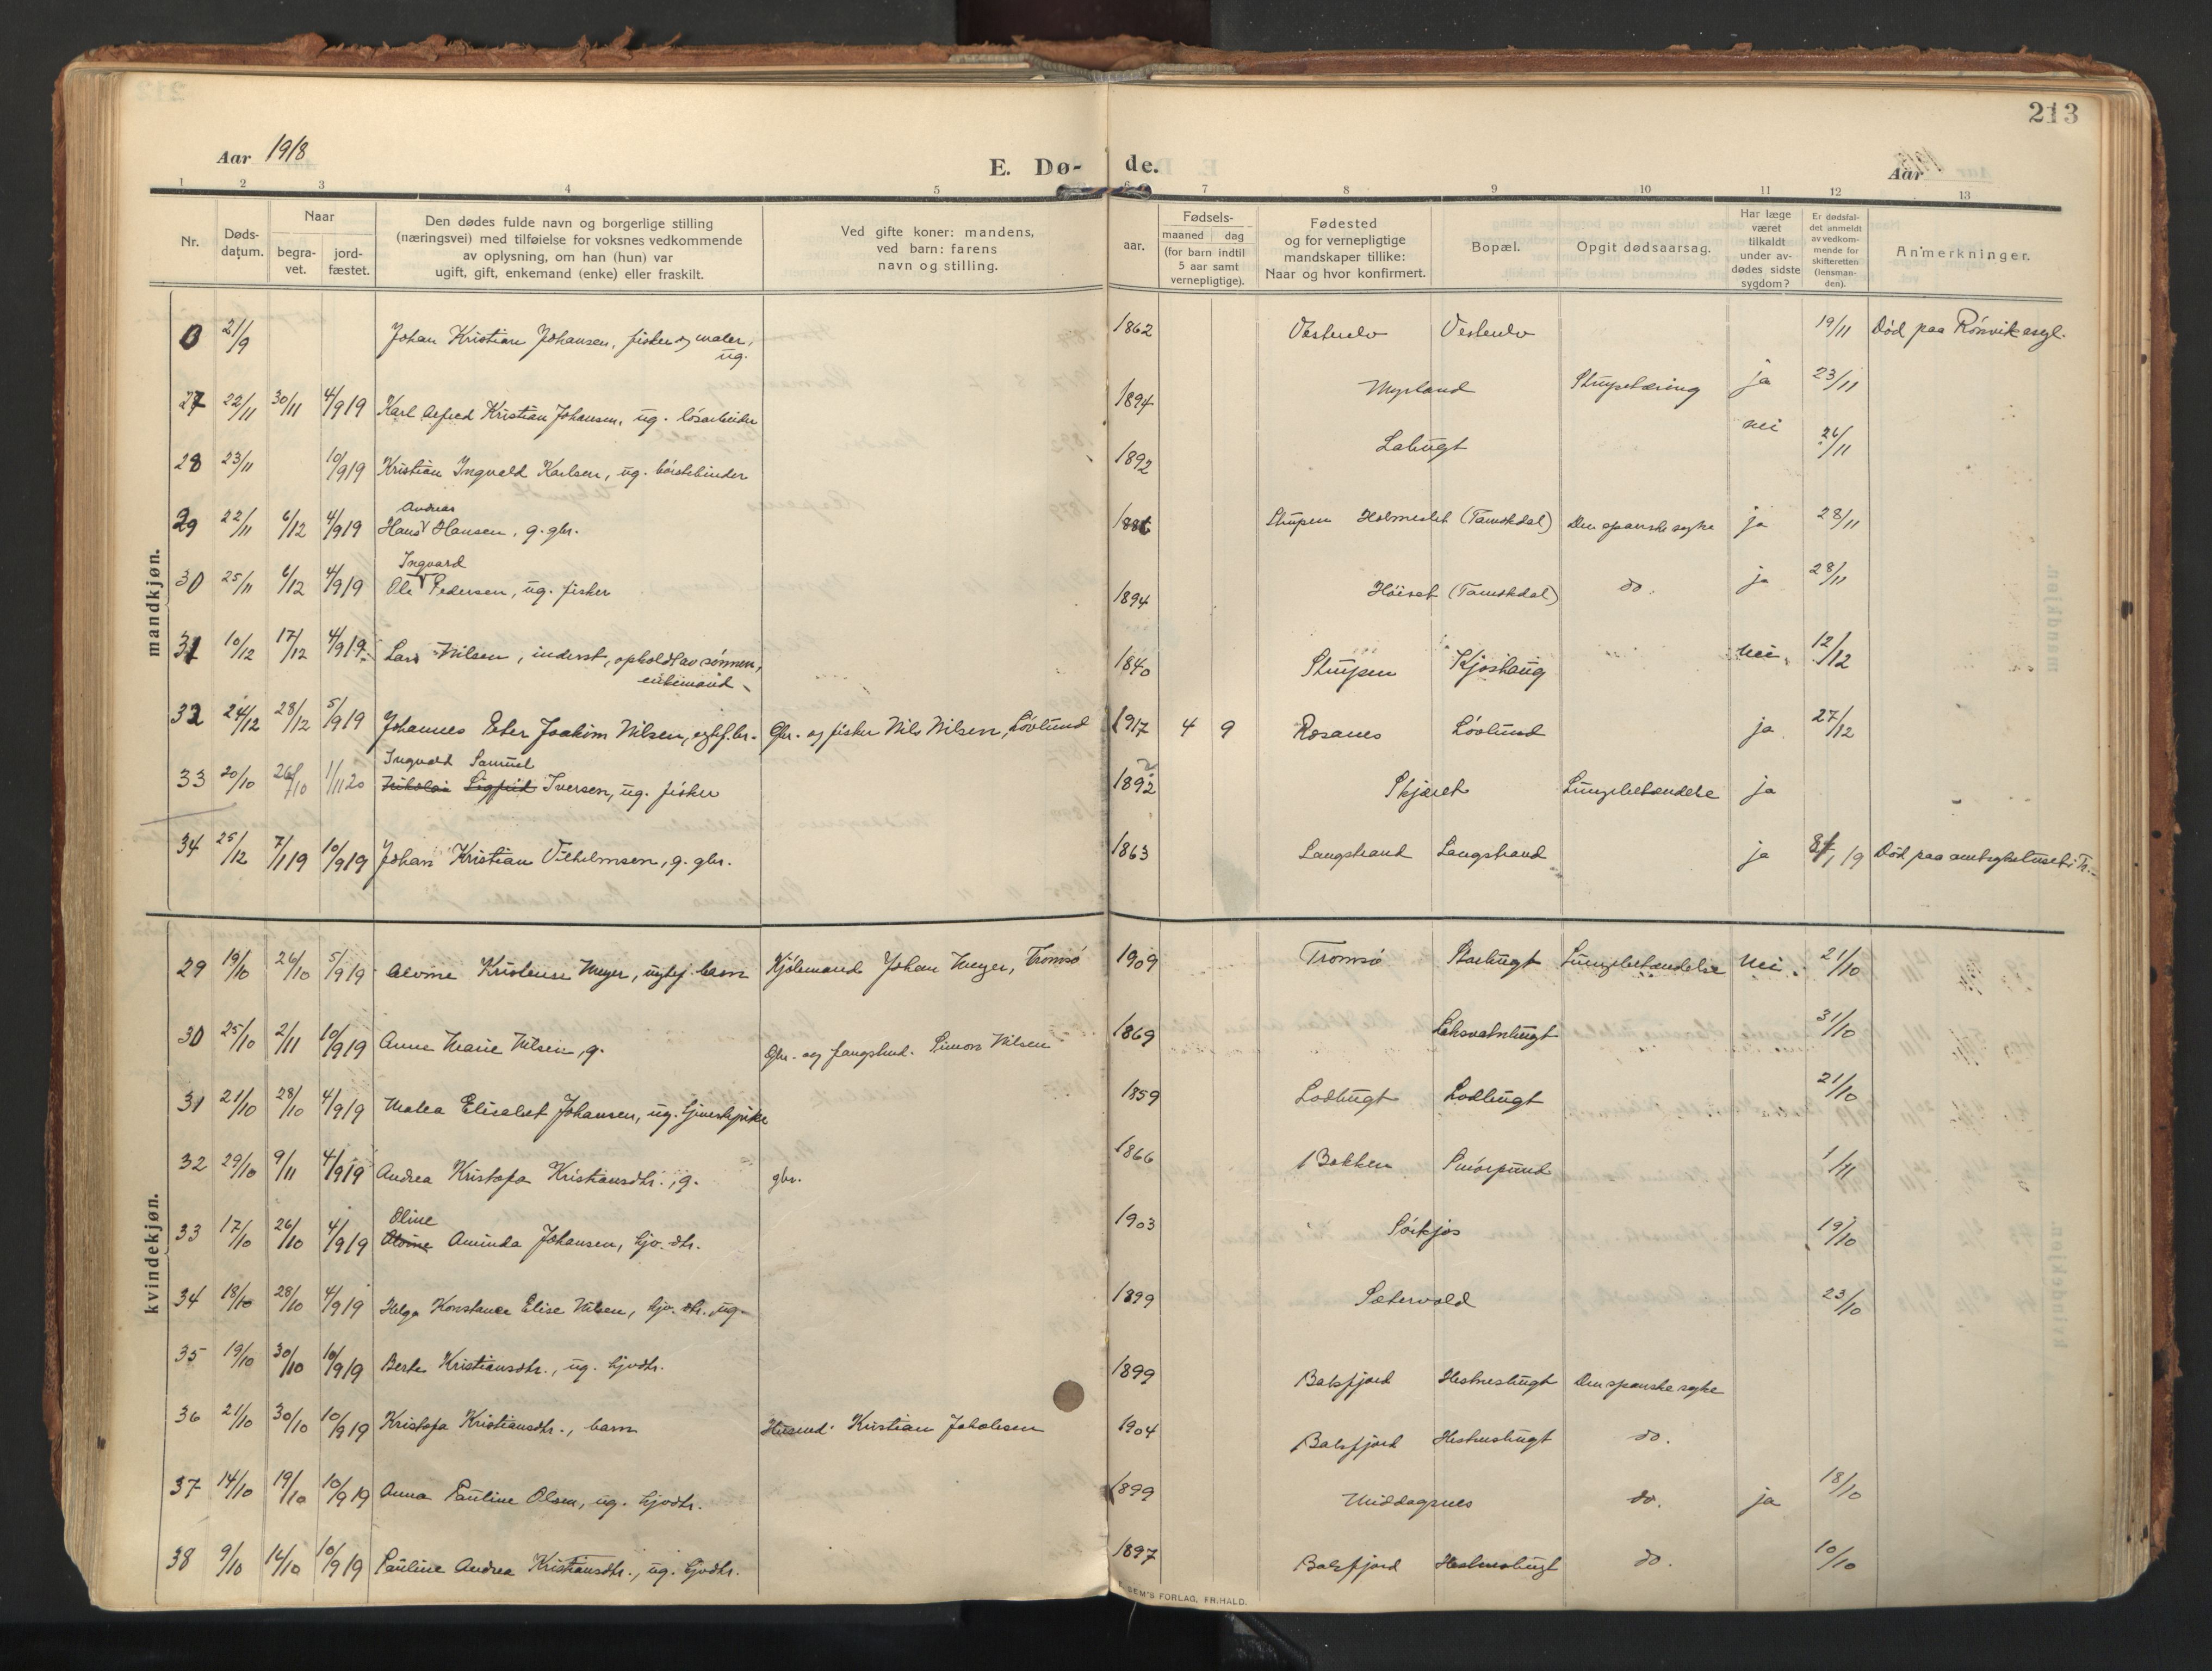 213
Aar 1918
E. Dø- de.
Aar
1 2 3 4 5 6 7 8 9 10 11 12 13
Nr.
Døds-
datum.
Naar
begra-
vet.
jord-
fæstet.
Den dødes fulde navn og borgerlige stilling
(næringsvei) med tilføielse for voksnes vedkommende
av oplysning, om han (hun) var
ugift, gift, enkemand (enke) eller fraskilt.
Ved gifte koner: mandens,
ved barn: farens
navn og stilling.
aar.
Fødsels-
maaned dag
(for barn indtil
5 aar samt
vernepligtige).
Fødested
og for vernepligtige
mandskaper tillike:
Naar og hvor konfirmert.
Bopæl.
Opgit dødsaarsag.
Har læge
været
tilkaldt
under av-
dødes sidste
sygdom?
Er dødsfal-
det anmeldt
av vedkom-
mende for
skifteretten
(lensman-
den).
Anmerkninger.
mandkjøn.
0 21/9 Johan Kristian Johansen, fisker og maler, 1862 19/11 Død paa Rønvik asyl.
ug.
27 22/11 30/11 4/9 19 Karl Alfred Kristian Johansen, ug. løsarbeider 1894 Myrland Strupetæring ja 23/11
28 23/11 10/9 19 Kristian Ingvald Karlsen, ug. børstebinder 1892 nei 26/11
Andreas
29 22/11 6/12 4/9 19 Hans Hansen, g. gbr. Stupen Holmeslet (Tamokdal) Den spanske syke ja 28/11
Ingvard
30 25/11 6/12 4/9 19 Ole Pedersen, ug. fisker 1894 Høiset (Tamokdal) do. ja 28/11
31 10/12 17/12 4/9 19 Lars Nilsen, inderst, opholdt av sønnen, 1840 Stupen Kjoshaug nei 12/12
enkemand
32 24/12 28/12 5/9 19 Johannes Peter Joakim Nilsen, egtef. br. Gbr. og fisker Nils Nilsen, Løvlund 1917 4 9 Rosanes Løvlund ja 27/12
Ingvald Samuel
33 20/10 26/10 1/11 20 Nikolai Sigfrid Iversen, ug. fisker 1892 Skjæret Lungebetændelse ja
34 25/12 7/1 19 10/9 19 Johan Kristian Vilhelmsen, g. gbr. 1863 Langstrand Langstrand ja /1 19 Død paa amtsykehuset i Tr.
kvindekjøn.
29 19/10 26/10 5/9 19 Alvine Kristense Meyer, ugtef. barn Kjøbmand Johan Meyer, Tromsø 1909 Tromsø Lungebetændelse Nei. 21/10
30 25/10 2/11 10/9 19 Anne Marie Nilsen, g. Gbr. og fangstmd. Simon Nilsen 1869 Laksvatnbugt 31/10
31 21/10 28/10 4/9 19 Malea Elisabet Johansen, ug. tjenestepike 1859 Lodbugt Lodbugt 21/10
32 29/10 9/11 4/9 19 Andrea Kristofa Kristiansdtr., g. gbr. 1866 Bakken 1/11
Oline
33 17/10 26/10 4/9 19 Alvine Aminda Johansen, hjv. dtr. 1903 Sørkjos 19/10
34 18/10 28/10 4/9 19 Helga Konstance Elise Nilsen, hjv. dtr. ug. 1899 Sætervold 23/10
35 19/10 30/10 10/9 19 Berte Kristiansdtr., ug. hjvdtr. 1899 Balsfjord Hestnesbugt Den spanske syke
36 21/10 30/10 10/9 19 Kristofa Kristiansdtr., barn Husmd. Kristian Jakobsen 1904 Balsfjord Hestnesbugt do.
37 14/10 19/10 10/9 19 Anna Pauline Olsen, ug. hjvdtr. 1899 Middagsnes do. ja 18/10
38 9/10 16/10 10/9 19 Pauline Andrea Kristiansdtr., ug. hjvdtr. 1897 Balsfjord Hestnesbugt do. 10/10
SEM'S FORLAG, FR.HALD.